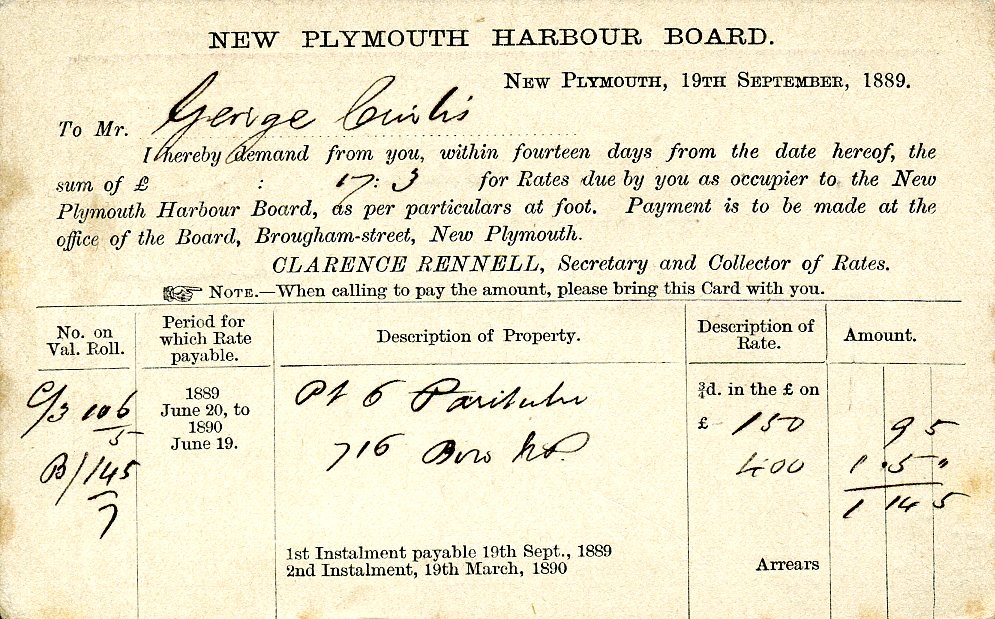 NEW PLYMOUTH HARBOUR BOARD.
NEW PLYMOUTH, 19TH SEPTEMBER, 1889.
To Mr. George Curtis
I hereby demand from you, within fourteen days from the date hereof, the
sum of £ : 17: 3 for Rates due by you as occupier to the New
Plymouth Harbour Board, as per particulars at foot. Payment is to be made at the
office of the Board, Brougham-street, New Plymouth.
CLARENCE RENNELL, Secretary and Collector of Rates.
☞ NOTE.—When calling to pay the amount, please bring this Card with you.
No. on Val. Roll.
Period for which Rate payable.
Description of Property.
Description of Rate.
Amount.
C/3 106/5
1889 June 20, to 1890 June 19.
Pt 6 Paritutu
¾d. in the £ on
£ 150
9 5
B/145/7
716 Boro N.P.
400
1 . 5 "
1 14 5
1st Instalment payable 19th Sept., 1889
2nd Instalment, 19th March, 1890
Arrears